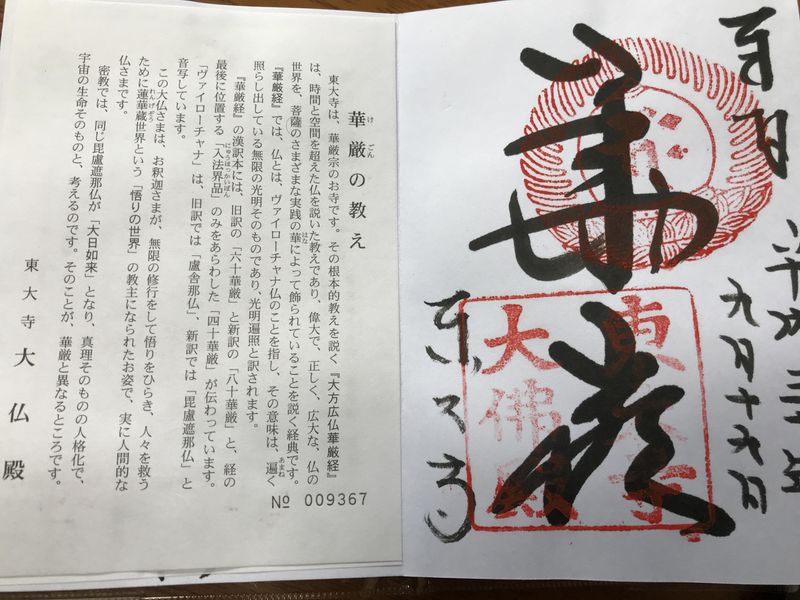 奉拝
平成三十年
九月十六日
華厳
東大寺
東大寺
大佛殿
華厳の教え
東大寺は、華厳宗のお寺です。その根本的教えを説く『大方広仏華厳経』
は、時間と空間を超えた仏を説いた教えであり、偉大で、正しく、広大な、仏の
世界を、菩薩のさまざまな実践の華によって飾られていることを説く経典です。
『華厳経』では、仏とは、ヴァイローチャナ仏のことを指し、その意味は、遍く
照らし出している無限の光明そのものであり、光明遍照と訳されます。
『華厳経』の漢訳本には、旧訳の「六十華厳」と新訳の「八十華厳」と、経の
最後に位置する「入法界品」のみをあらわした「四十華厳」が伝わっています。
「ヴァイローチャナ」は、旧訳では「盧舎那仏」、新訳では「毘盧遮那仏」と
音写しています。
この大仏さまは、お釈迦さまが、無限の修行をして悟りをひらき、人々を救う
ために蓮華蔵世界という「悟りの世界」の教主になられたお姿で、実に人間的な
仏さまです。
密教では、同じ毘盧遮那仏が「大日如来」となり、真理そのものの人格化で、
宇宙の生命そのものと、考えるのです。そのことが、華厳と異なるところです。
東大寺 大仏殿
№ 009367